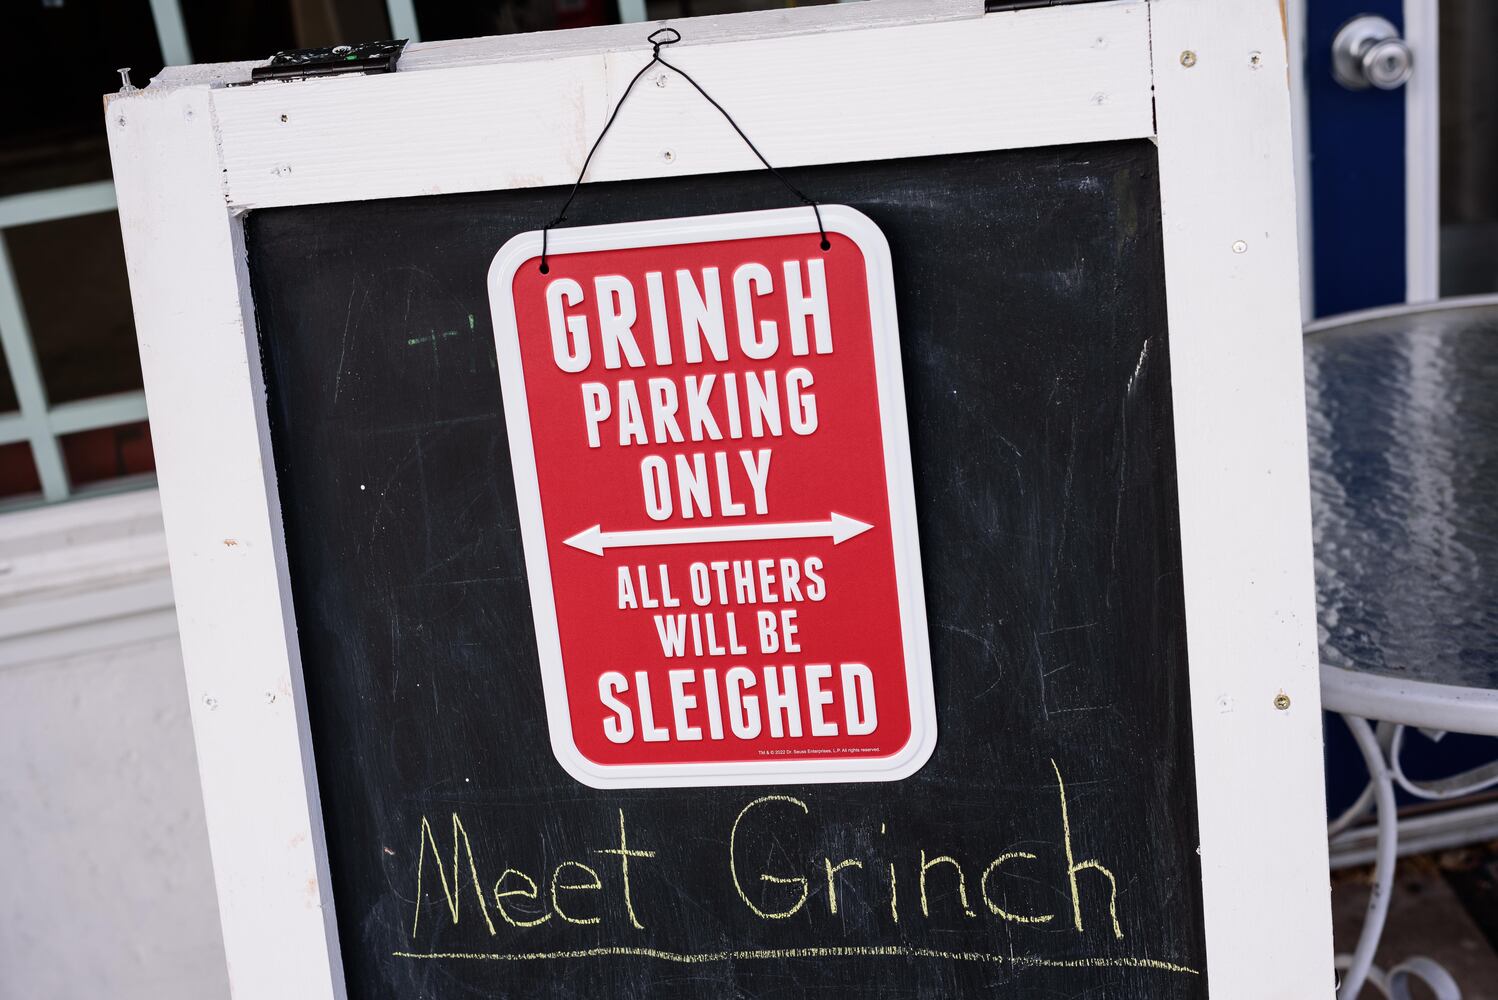 GRINCH
PARKING
ONLY
ALL OTHERS
WILL BE
SLEIGHED
TM & © 2022 Dr. Seuss Enterprises, L.P. All rights reserved.
Meet Grinch